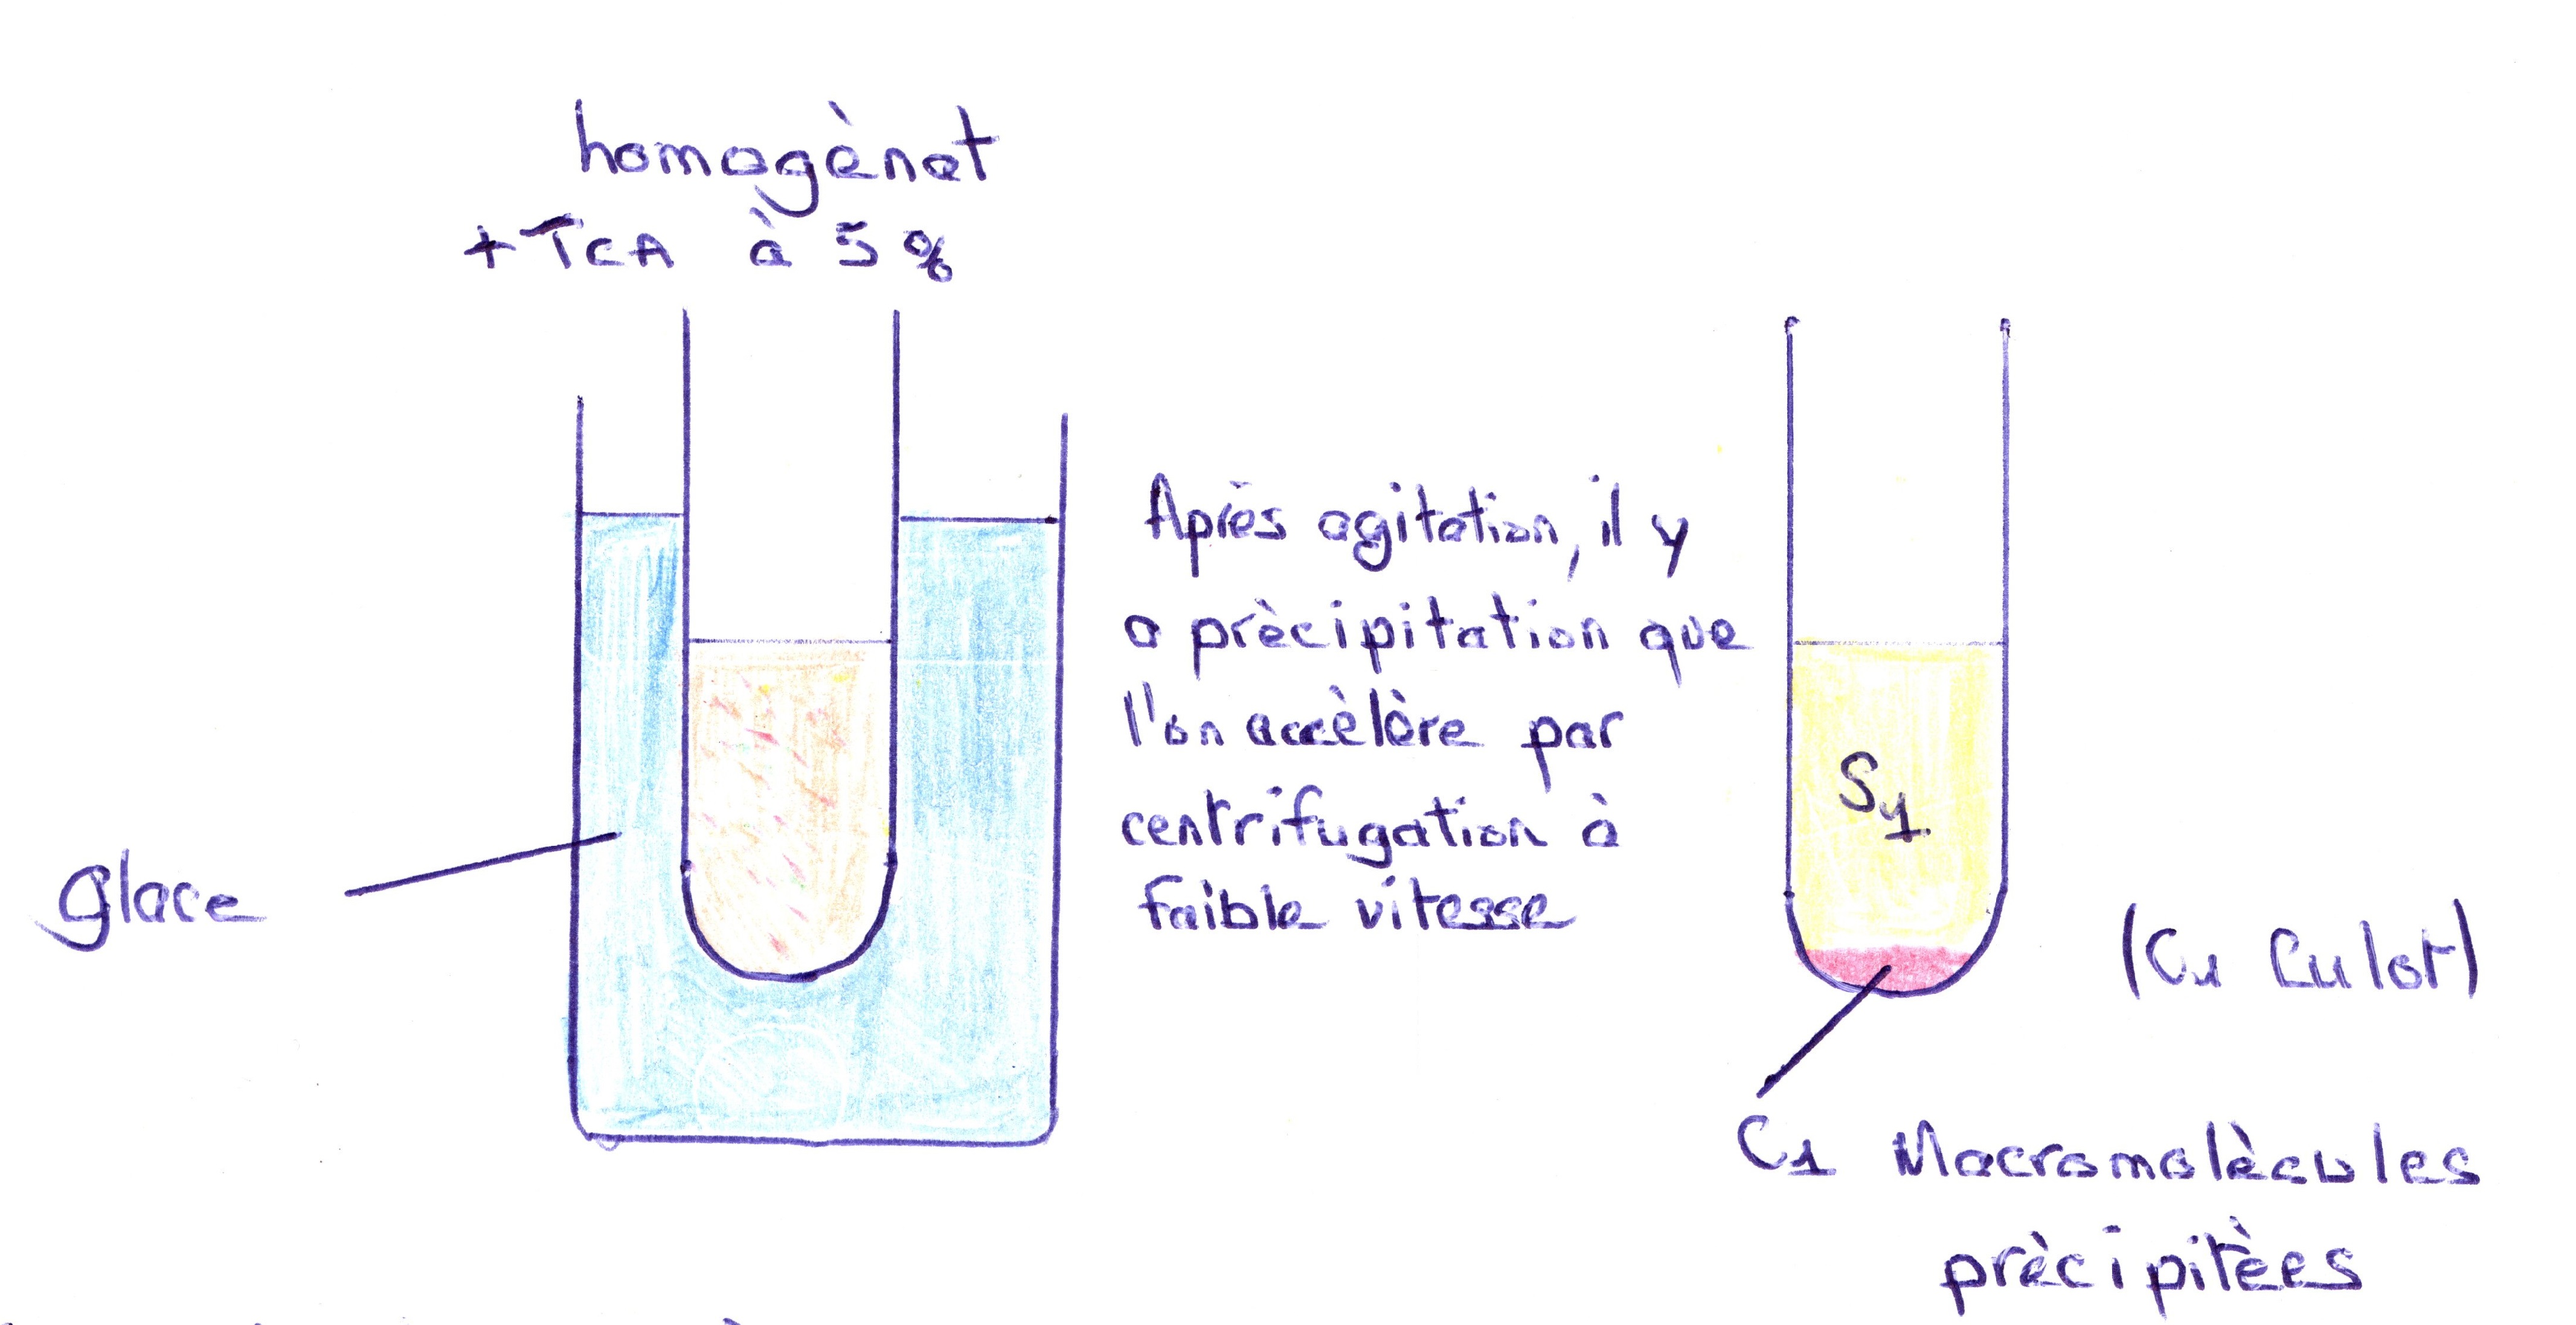 homogènat
+ TCA à 5 %
glace
Après agitation, il y
a prècipitation que
l'on accèlère par
centrifugation à
faible vitesse
S1
(C1 Culot)
C1 Macromolècules
prècipitèes